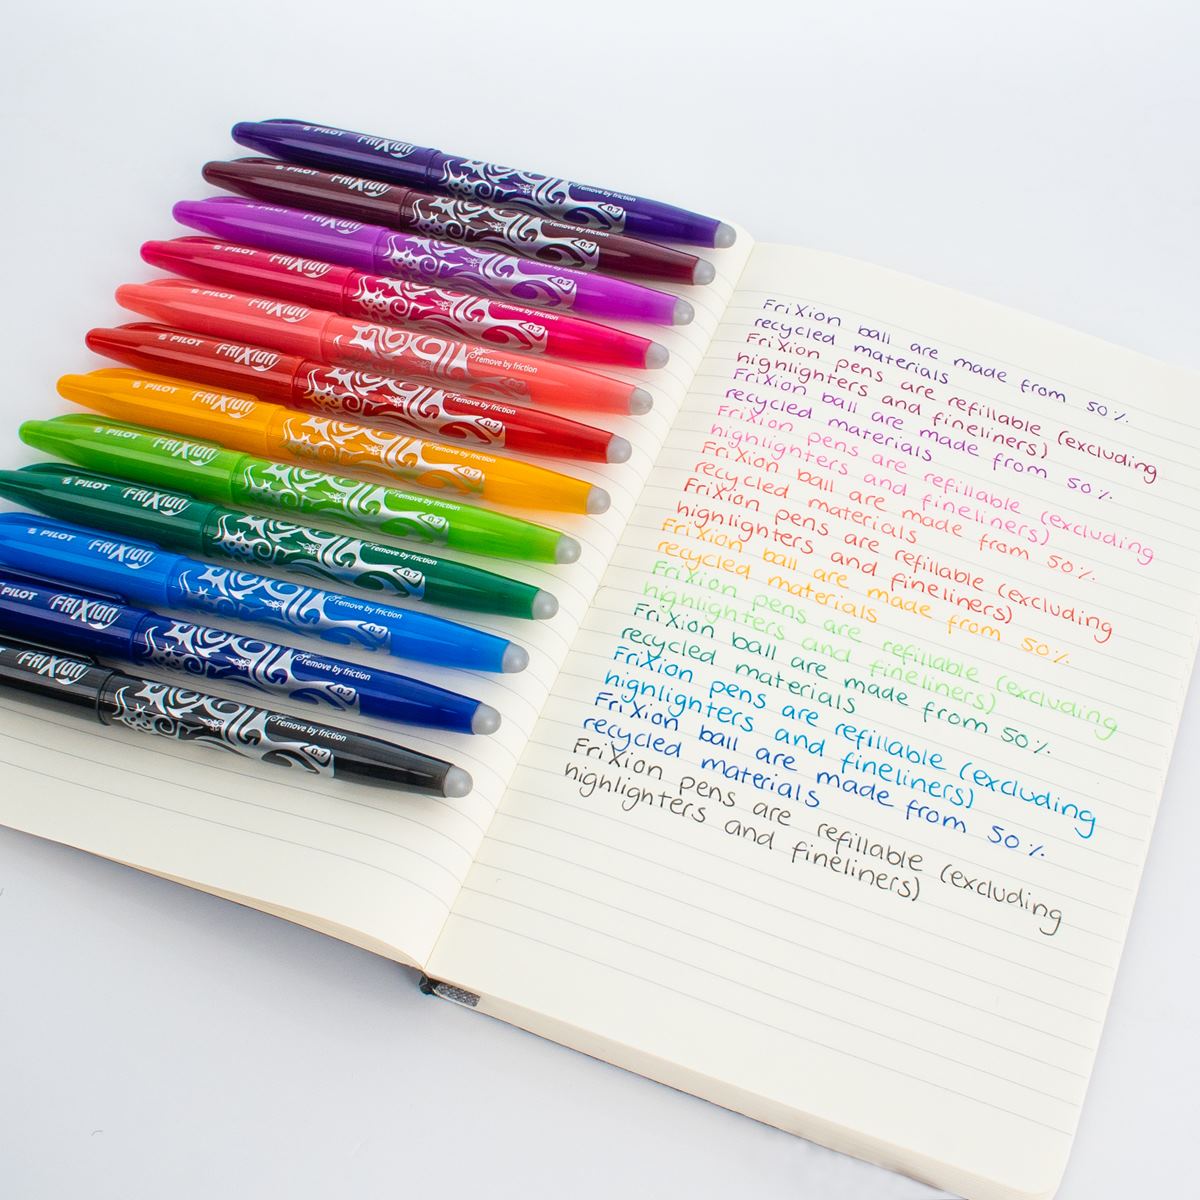 PILOT FRIXION remove by friction 0.7
PILOT FRIXION remove by friction 0.7
FRIXION remove by friction 0.7
PILOT FRIXION remove by friction 0.7
PILOT FRIXION remove by friction
PILOT FRIXION remove by friction 0.7
PILOT FRIXION remove by friction 0.7
PILOT FRIXION remove by friction 0.7
PILOT FRIXION remove by friction 0.7
PILOT FRIXION remove by friction 0.7
PILOT FRIXION remove by friction 0.7
FRIXION remove by friction 0.7
FriXion ball are made from 50%
recycled materials
FriXion pens are refillable (excluding
highlighters and fineliners)
FriXion ball are made from 50%
recycled materials
FriXion pens are refillable (excluding
highlighters and fineliners)
FriXion ball are made from 50%
recycled materials
FriXion pens are refillable (excluding
highlighters and fineliners)
FriXion ball are made from 50%
recycled materials
FriXion pens are refillable (excluding
highlighters and fineliners)
FriXion ball are made from 50%
recycled materials
FriXion pens are refillable (excluding
highlighters and fineliners)
FriXion ball are made from 50%
recycled materials
FriXion pens are refillable (excluding
highlighters and fineliners)